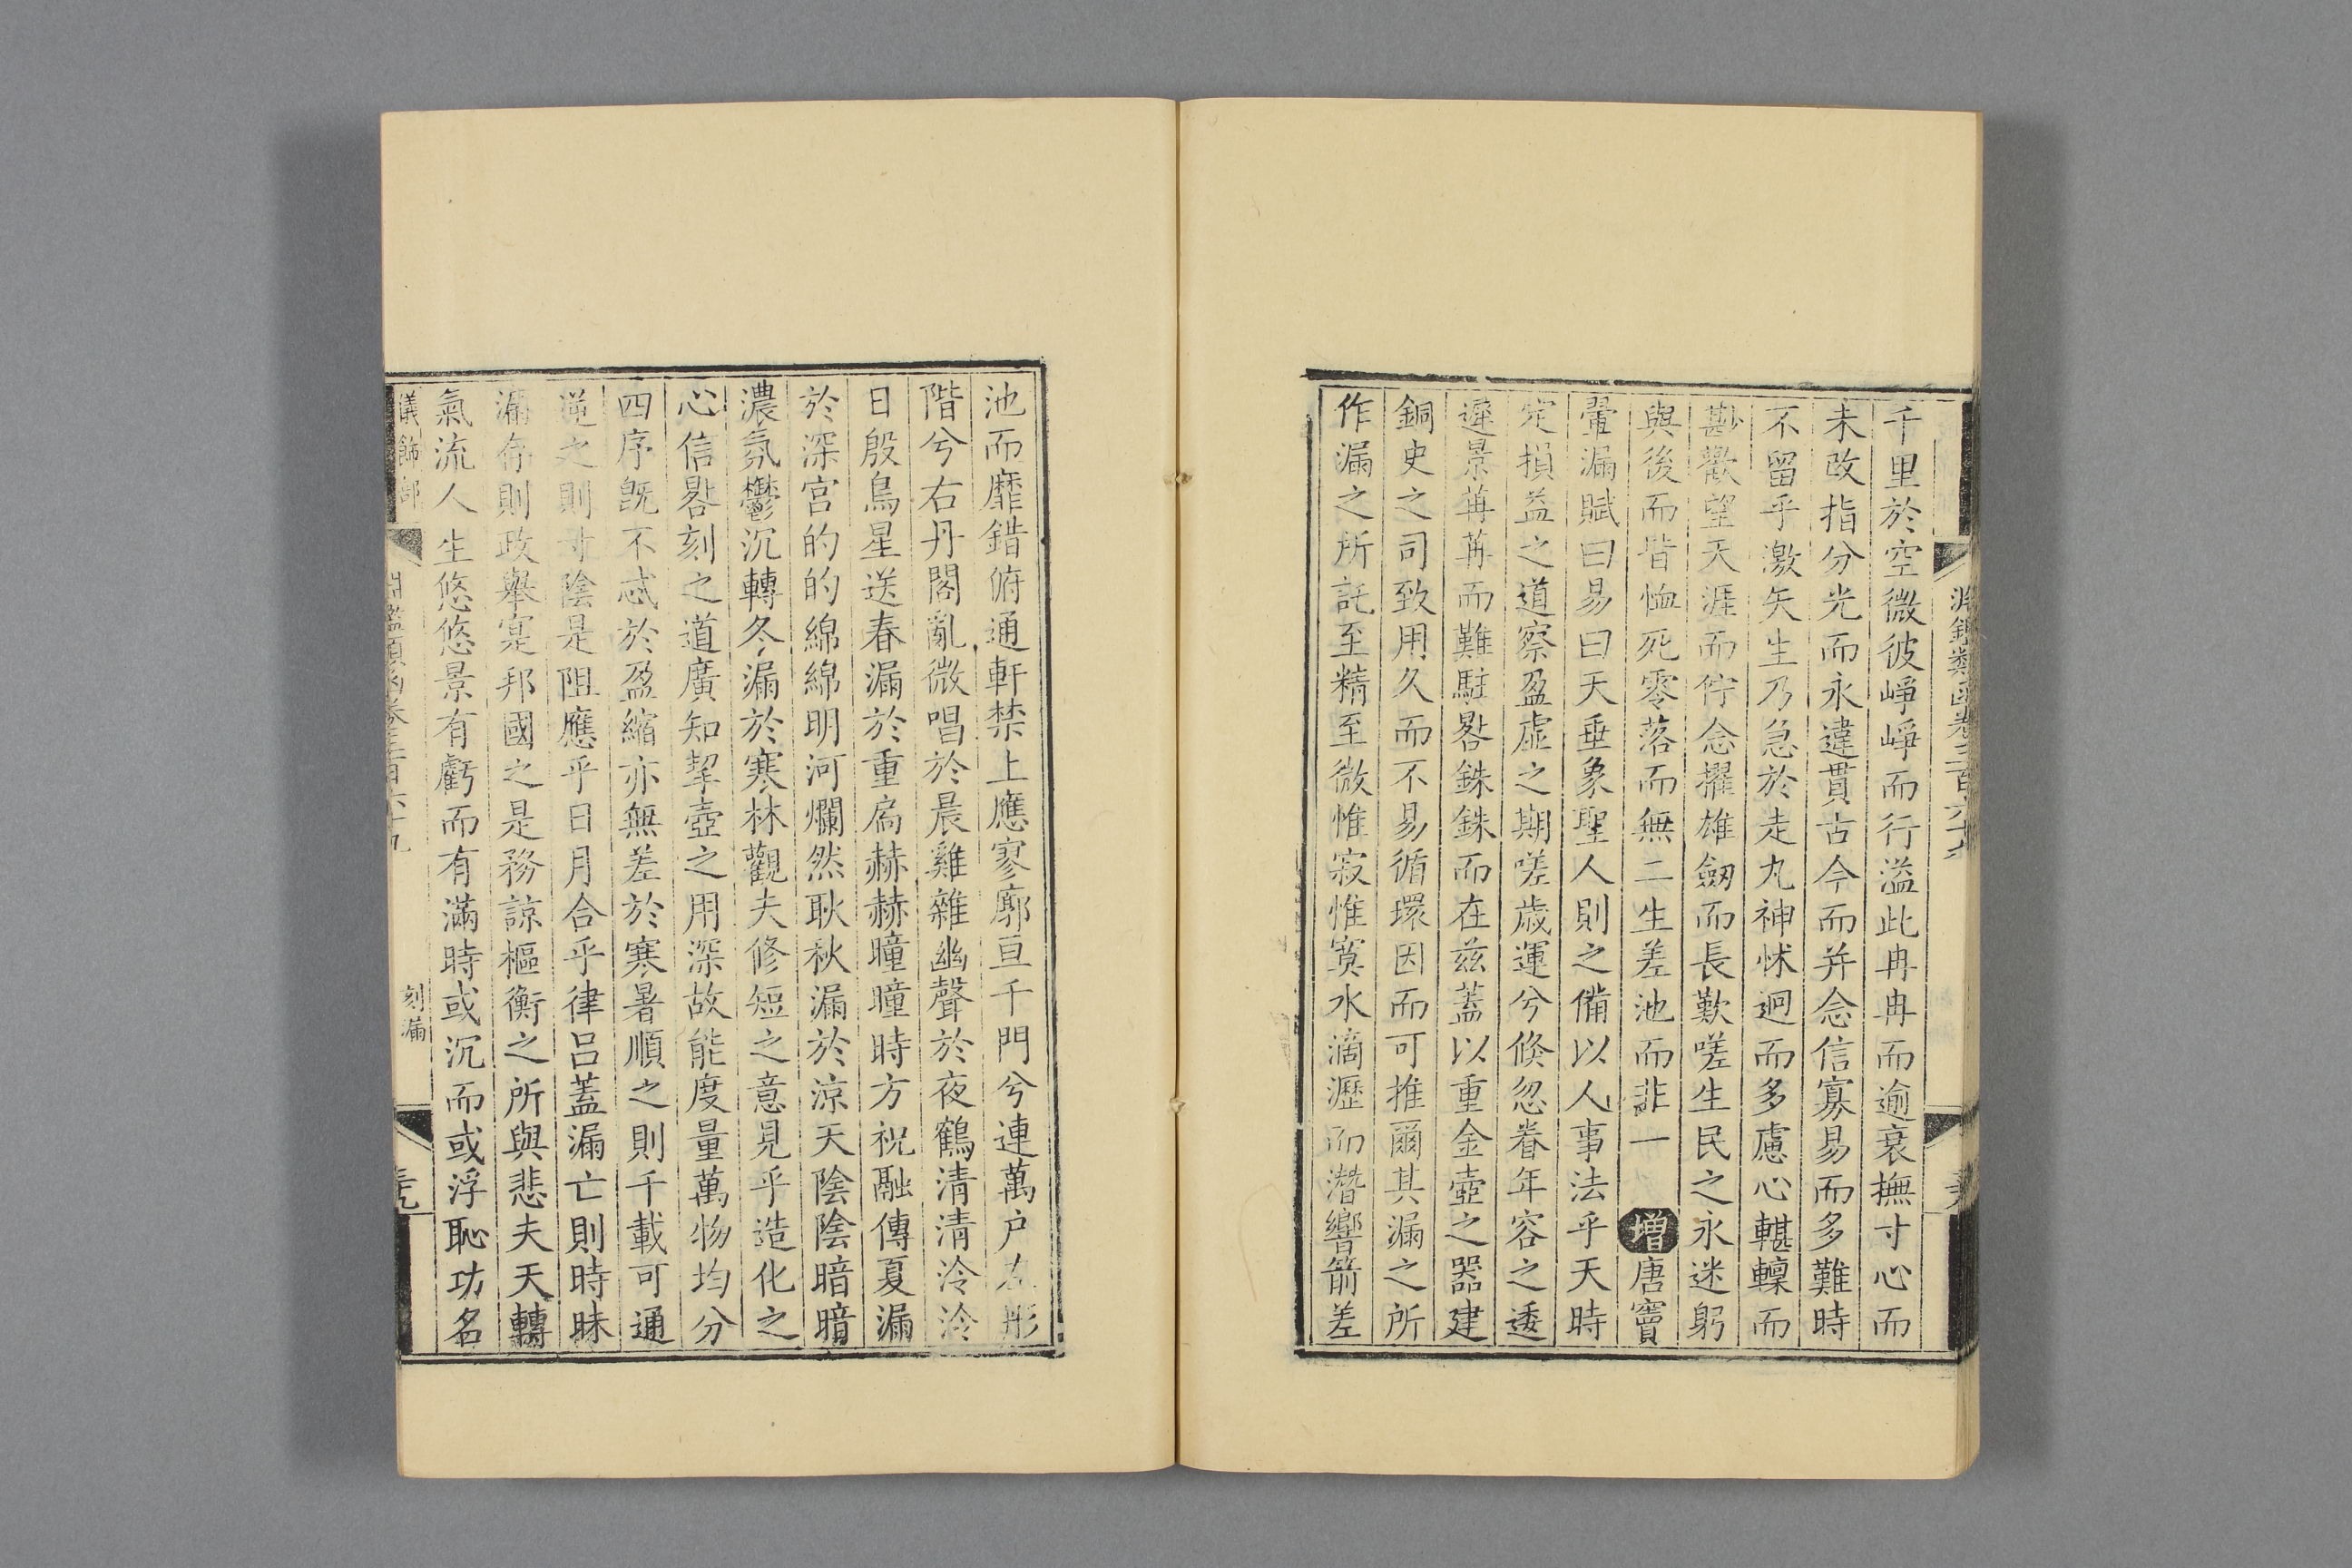 淵鑑類函卷三百六十九
千里於空微彼崢崢而行溢此冉冉而逾衰撫寸心而
未改指分光而永違貫古今而并念信寡易而多難時
不留乎激矢生乃急於走丸神怵迥而多慮心轗轅而
尠歡望天涯而佇念擢雄劒而長歎嗟生民之永迷躬
與後而皆恤死零落而無二生差池而非一增唐竇
暈漏賦曰易曰天垂象聖人則之備以人事法乎天時
定損益之道察盈虛之期嗟歲運兮倏忽眷年容之逶
遲景苒苒而難駐晷銖銖而在茲蓋以重金壺之器建
銅史之司致用久而不易循環因而可推爾其漏之所
作漏之所託至精至微惟寂惟寞水滴瀝而潛響箭差
池而靡錯俯通軒禁上應寥廓亘千門兮連萬戶左彤
階兮右丹閣亂微唱於晨雞雜幽聲於夜鶴清清泠泠
日殷鳥星送春漏於重扃赫赫曈曈時方祝融傳夏漏
於深宮的的綿綿明河爛然耿秋漏於涼天陰陰暗暗
濃氛鬱沉轉冬漏於寒林觀夫修短之意見乎造化之
心信晷刻之道廣知挈壺之用深故能度量萬物均分
四序旣不忒於盈縮亦無差於寒暑順之則千載可通
逆之則寸陰是阻應乎日月合乎律呂蓋漏亡則時昧
漏存則政舉寔邦國之是務諒樞衡之所與悲夫天轉
氣流人生悠悠景有虧而有滿時或沉而或浮恥功名
儀飾部 淵鑑類函卷三百六十九 刻漏